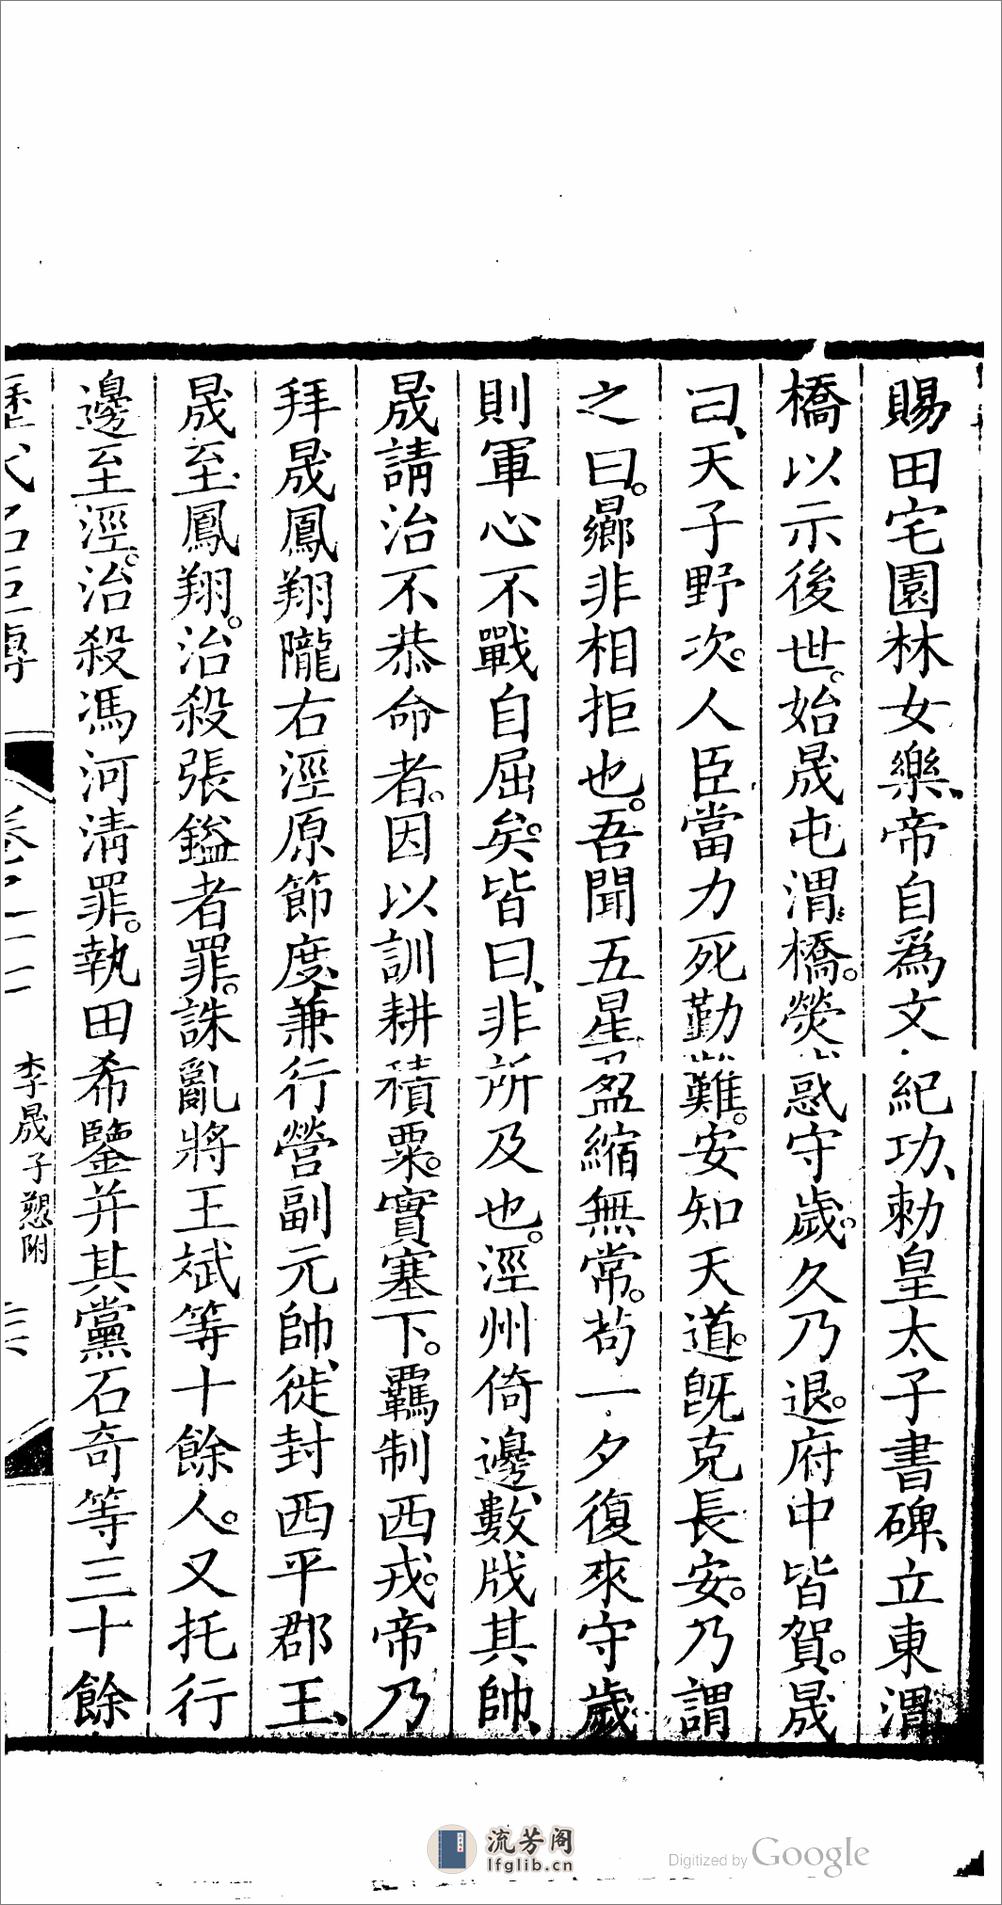 賜田宅園林女樂、帝自爲文紀功、勅皇太子書碑、立東渭
橋以示後世。始晟屯渭橋。熒惑守歲。久乃退。府中皆賀。晟
曰、天子野次。人臣當力死勤難。安知天道。旣克長安。乃謂
之曰。曏非相拒也。吾聞五星盈縮無常。苟一夕復來守歲
則軍心不戰自屈矣。皆曰、非所及也。涇州倚邊、數戕其帥、
晟請治不恭命者。因以訓耕積粟。實塞下。羈制西戎。帝乃
拜晟鳳翔隴右涇原節度、兼行營副元帥、徙封西平郡王、
晟至鳳翔。治殺張鎰者罪。誅亂將王斌等十餘人。又托行
邊至涇。治殺馮河淸罪。執田希鑒并其黨石奇等三十餘
歷代名臣傳
李晟子愬附
流芳阁
lfglib.cn
Digitized by Google